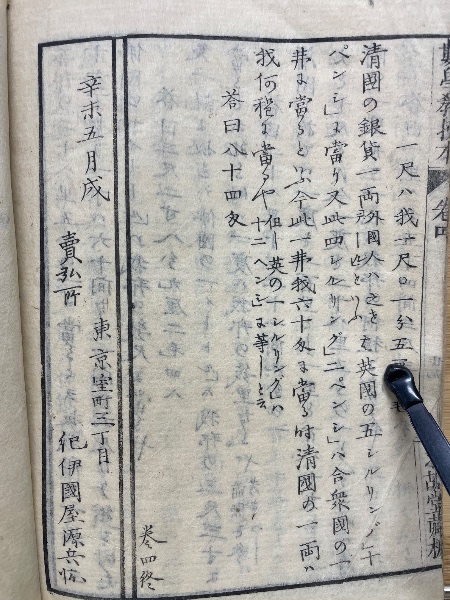 數學教授本
卷四
一尺ハ我一尺〇一分五
清國の銀貨一両外國人ハ之を
といふ英國の五「シルリング」十
ペンシ」に當り又此四「シルリング」二「ペンシ」ハ合衆國の一
弗に當るといふ今此一弗我六十匁に當る时清國の一両ハ
我何程に當るや但し英の一「シルリング」ハ
十二「ペンシ」に等しと云
答曰八十四匁
卷四終
辛未五月成
賣弘所 東京室町三丁目
紀伊國屋源兵衛